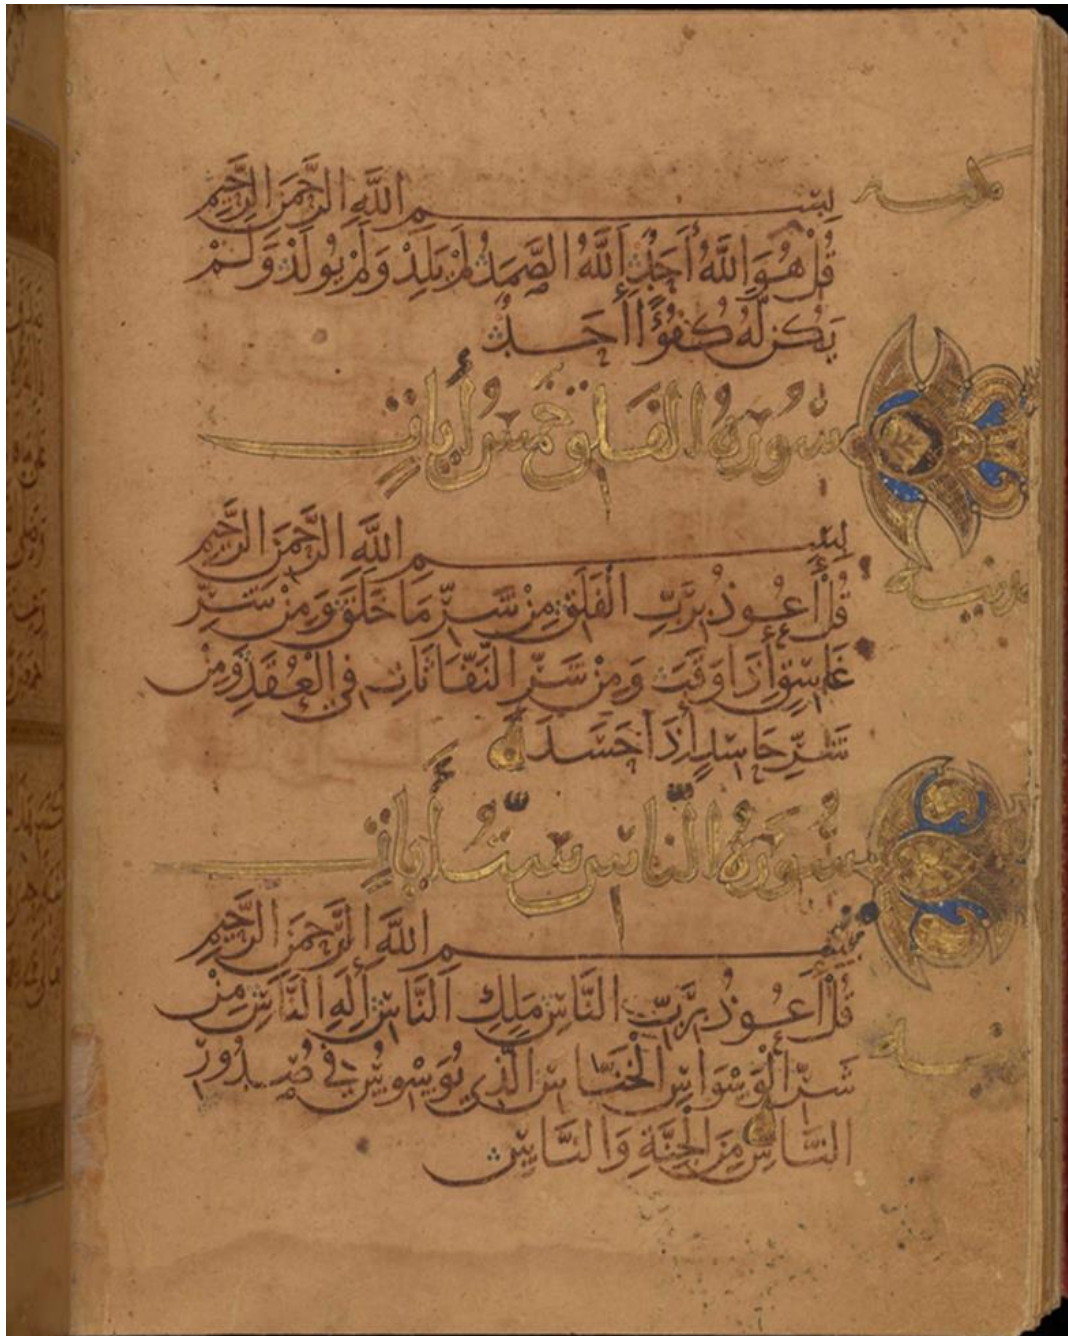 بِسْمِ اللَّهِ الرَّحْمَنِ الرَّحِيمِ
مكية
قُلْ هُوَ اللَّهُ أَحَدٌ اللَّهُ الصَّمَدُ لَمْ يَلِدْ وَلَمْ يُولَدْ وَلَمْ
يَكُن لَّهُ كُفُؤًا أَحَدٌ
سُورَةُ الْفَلَقِ خَمْسُ أَيَاتٍ
بِسْمِ اللَّهِ الرَّحْمَنِ الرَّحِيمِ
مدنية
قُلْ أَعُوذُ بِرَبِّ الْفَلَقِ مِنْ شَرِّ مَا خَلَقَ وَمِنْ شَرِّ
غَاسِقٍ إِذَا وَقَبَ وَمِنْ شَرِّ النَّفَّاثَاتِ فِي الْعُقَدِ وَمِنْ
شَرِّ حَاسِدٍ إِذَا حَسَدَ
سُورَةُ النَّاسِ سِتُّ أَيَاتٍ
بِسْمِ اللَّهِ الرَّحْمَنِ الرَّحِيمِ
قُلْ أَعُوذُ بِرَبِّ النَّاسِ مَلِكِ النَّاسِ إِلَهِ النَّاسِ مِنْ
شَرِّ الْوَسْوَاسِ الْخَنَّاسِ الَّذِي يُوَسْوِسُ فِي صُدُورِ
النَّاسِ مِنَ الْجِنَّةِ وَالنَّاسِ